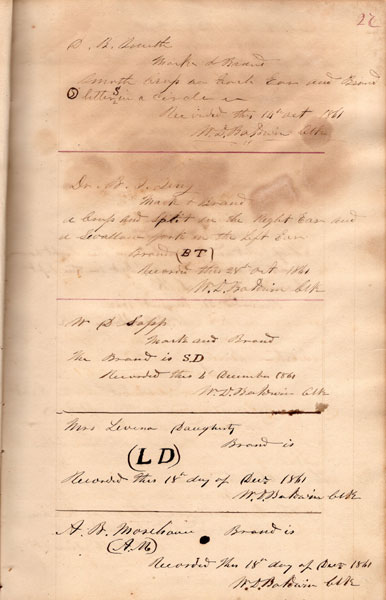 22
D. B. Smith
Mark & Brand
Smooth crop on Each Ear and Brand
letter S in a circle
Recorded this 14th oct 1861
W. D. Baldwin Clk
Dr. B. T.
Mark & Brand
a Crop and Split in the Right Ear and
a Swallow fork in the Left Ear
Brand (B T)
Recorded this 28th Oct 1861
W. D. Baldwin Clk
W D Sapp
Mark and Brand
The Brand is S.D
Recorded this December 1861
W. D. Baldwin Clk
Mrs Levina Daugherty
Brand is
(L D)
Recorded this 18th day of Dec 1861
W. D. Baldwin Clk
A. W. Brand is
(A.M)
Recorded this 18th day of Dec 1861
W. D. Baldwin Clk